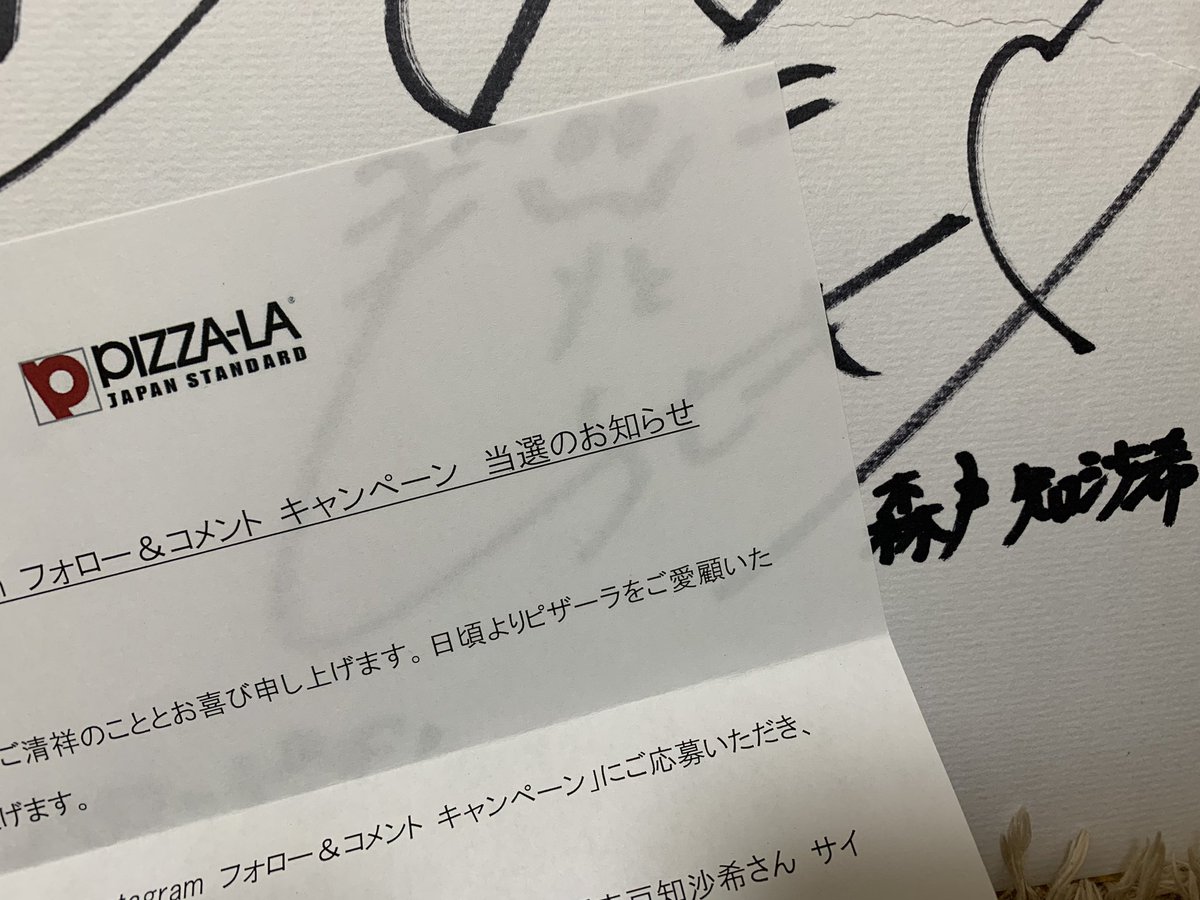 PIZZA-LA®
JAPAN STANDARD
フォロー＆コメント キャンペーン 当選のお知らせ
ご清祥のこととお喜び申し上げます。日頃よりピザーラをご愛顧いた
げます。
tagram フォロー＆コメント キャンペーン」にご応募いただき、
戸知沙希さん サイ
森戸知沙希